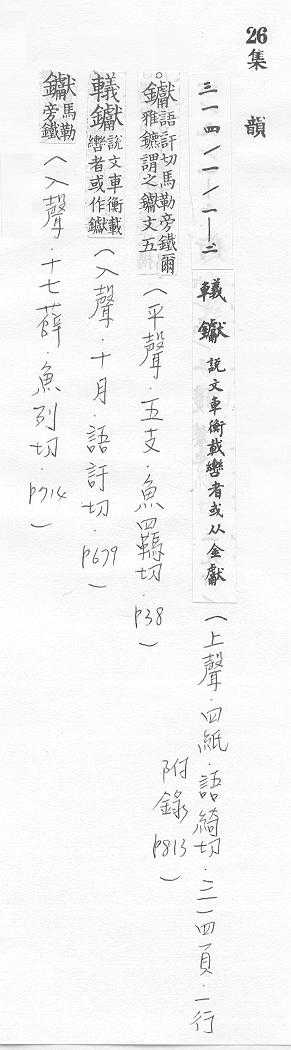 26
集韻
三一四/一/一—二
轙钀 說文車衡載轡者或从金獻(上聲.四紙.語綺切.三一四頁.一行
附錄p813)
钀語訐切馬勒旁鐵爾雅鑣謂之钀文五(平聲.五支.魚羈切.p38)
轙钀說文車衡載轡者或作钀(入聲.十月.語訐切.p679)
钀馬勒旁鐵(入聲.十七薛.魚列切.p714)